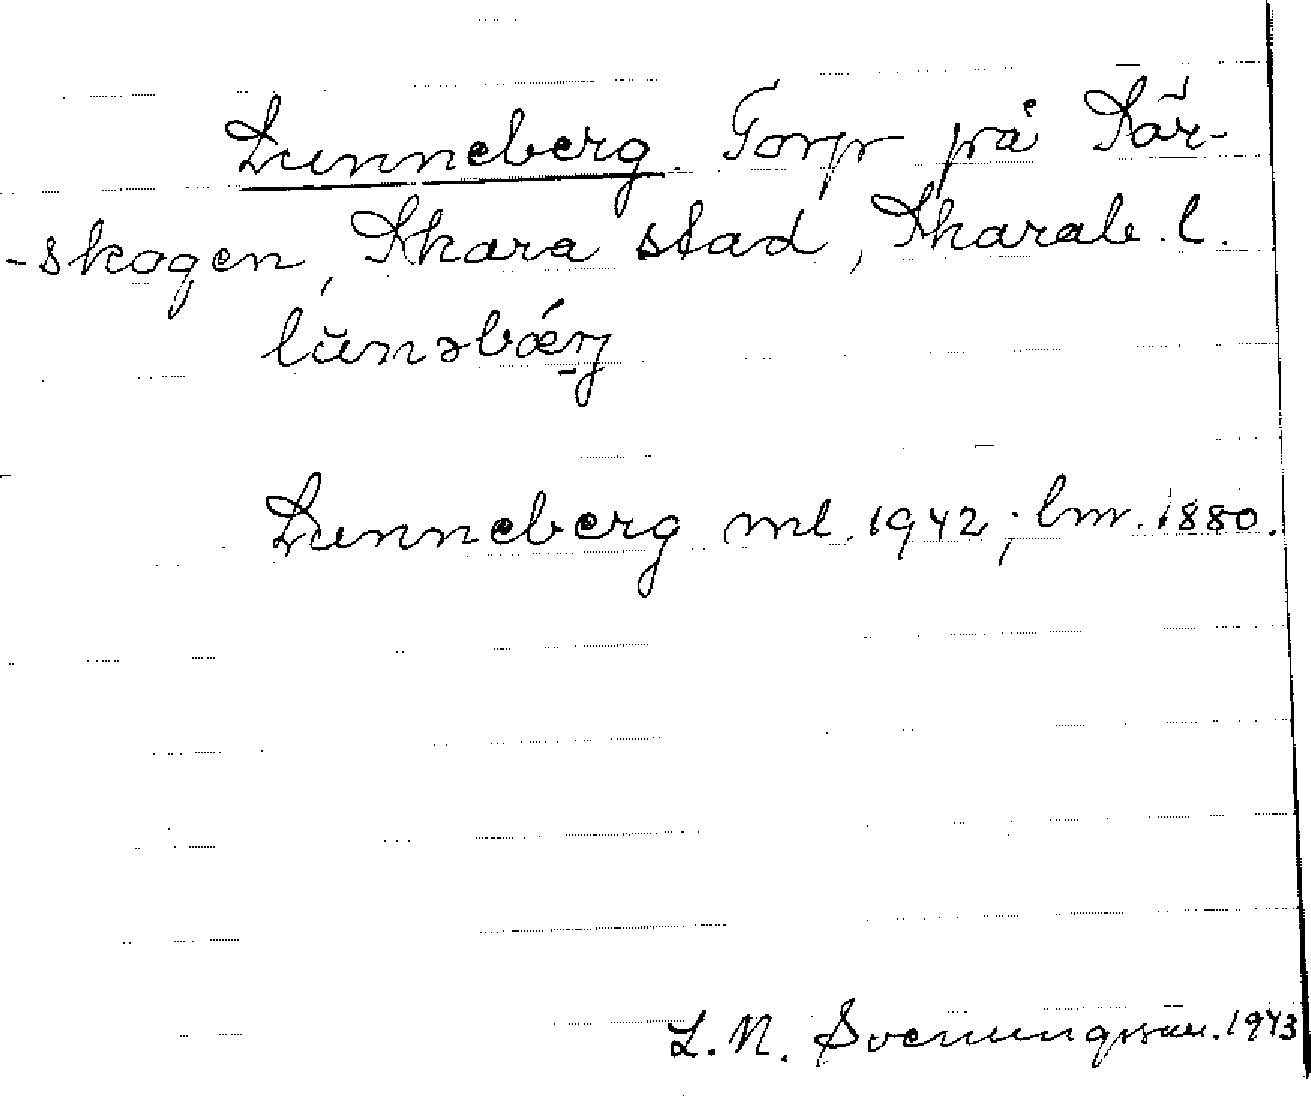 Lunneberg. Torp på Får-
-skogen, Skara stad, Skarab. l.
lŭnəbǽrj
Lunneberg ml. 1942; lmr. 1880.
L. N. Svenungsson. 1943